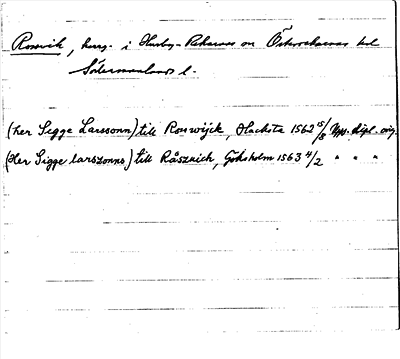 Rosvik, herrg. i Husby-Rekarnes sn Österrekarnes hd
Södermanlands l.
(her Segge Larssonn) till Roswijck, Stacksta 1562 15/8 Ups. dipl. orig.
(Her Sigge larszonns) till Råszuich, Göksholm 1563 4/2 " " "